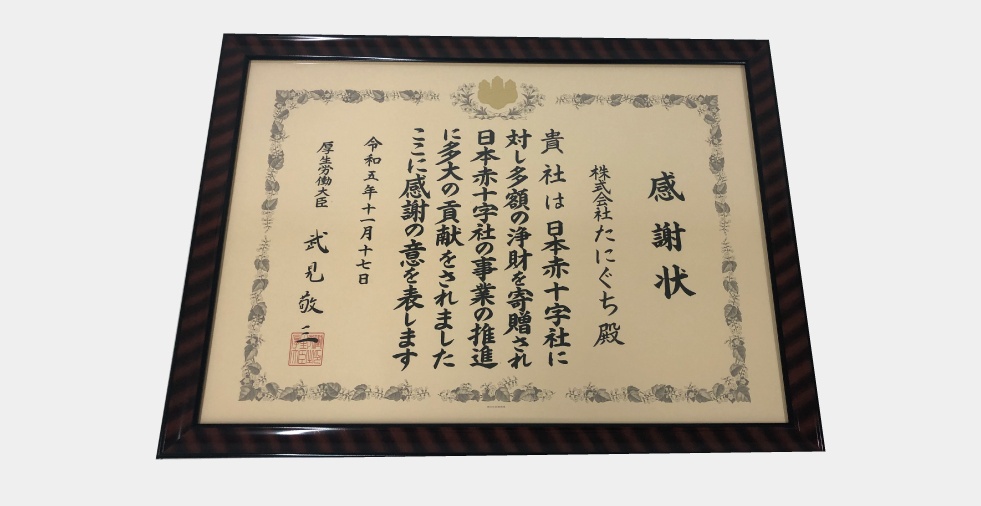 感謝状
株式会社たにぐち殿
貴社は日本赤十字社に
対し多額の浄財を寄贈され
日本赤十字社の事業の推進
に多大の貢献をされました
ここに感謝の意を表します
令和五年十一月十七日
厚生労働大臣
武見敬三